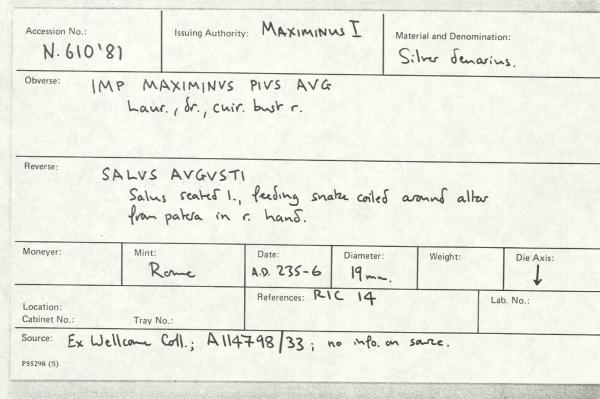 Accession No.: N.610'81
Issuing Authority: MAXIMINUS I
Material and Denomination: Silver denarius.
Obverse: IMP MAXIMINVS PIVS AVG
Laur., dr., cuir. bust r.
Reverse: SALVS AVGVSTI
Salus seated l., feeding snake coiled around altar
from patera in r. hand.
Moneyer:
Mint: Rome
Date: A.D. 235-6
Diameter: 19mm.
Weight:
Die Axis: ↓
Location:
Cabinet No.: Tray No.:
References: RIC 14
Lab. No.:
Source: Ex Wellcome Coll.; A114798/33; no info. on source.
P55298 (S)